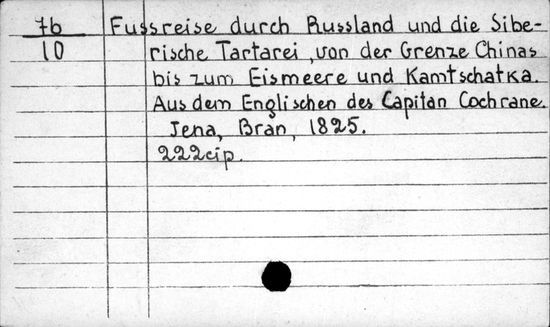 76 Fussreise durch Russland und die Sibe-
10 rische Tartarei, von der Grenze Chinas
bis zum Eismeere und Kamtschatka.
Aus dem Englischen des Capitan Cochrane.
Jena, Bran, 1825.